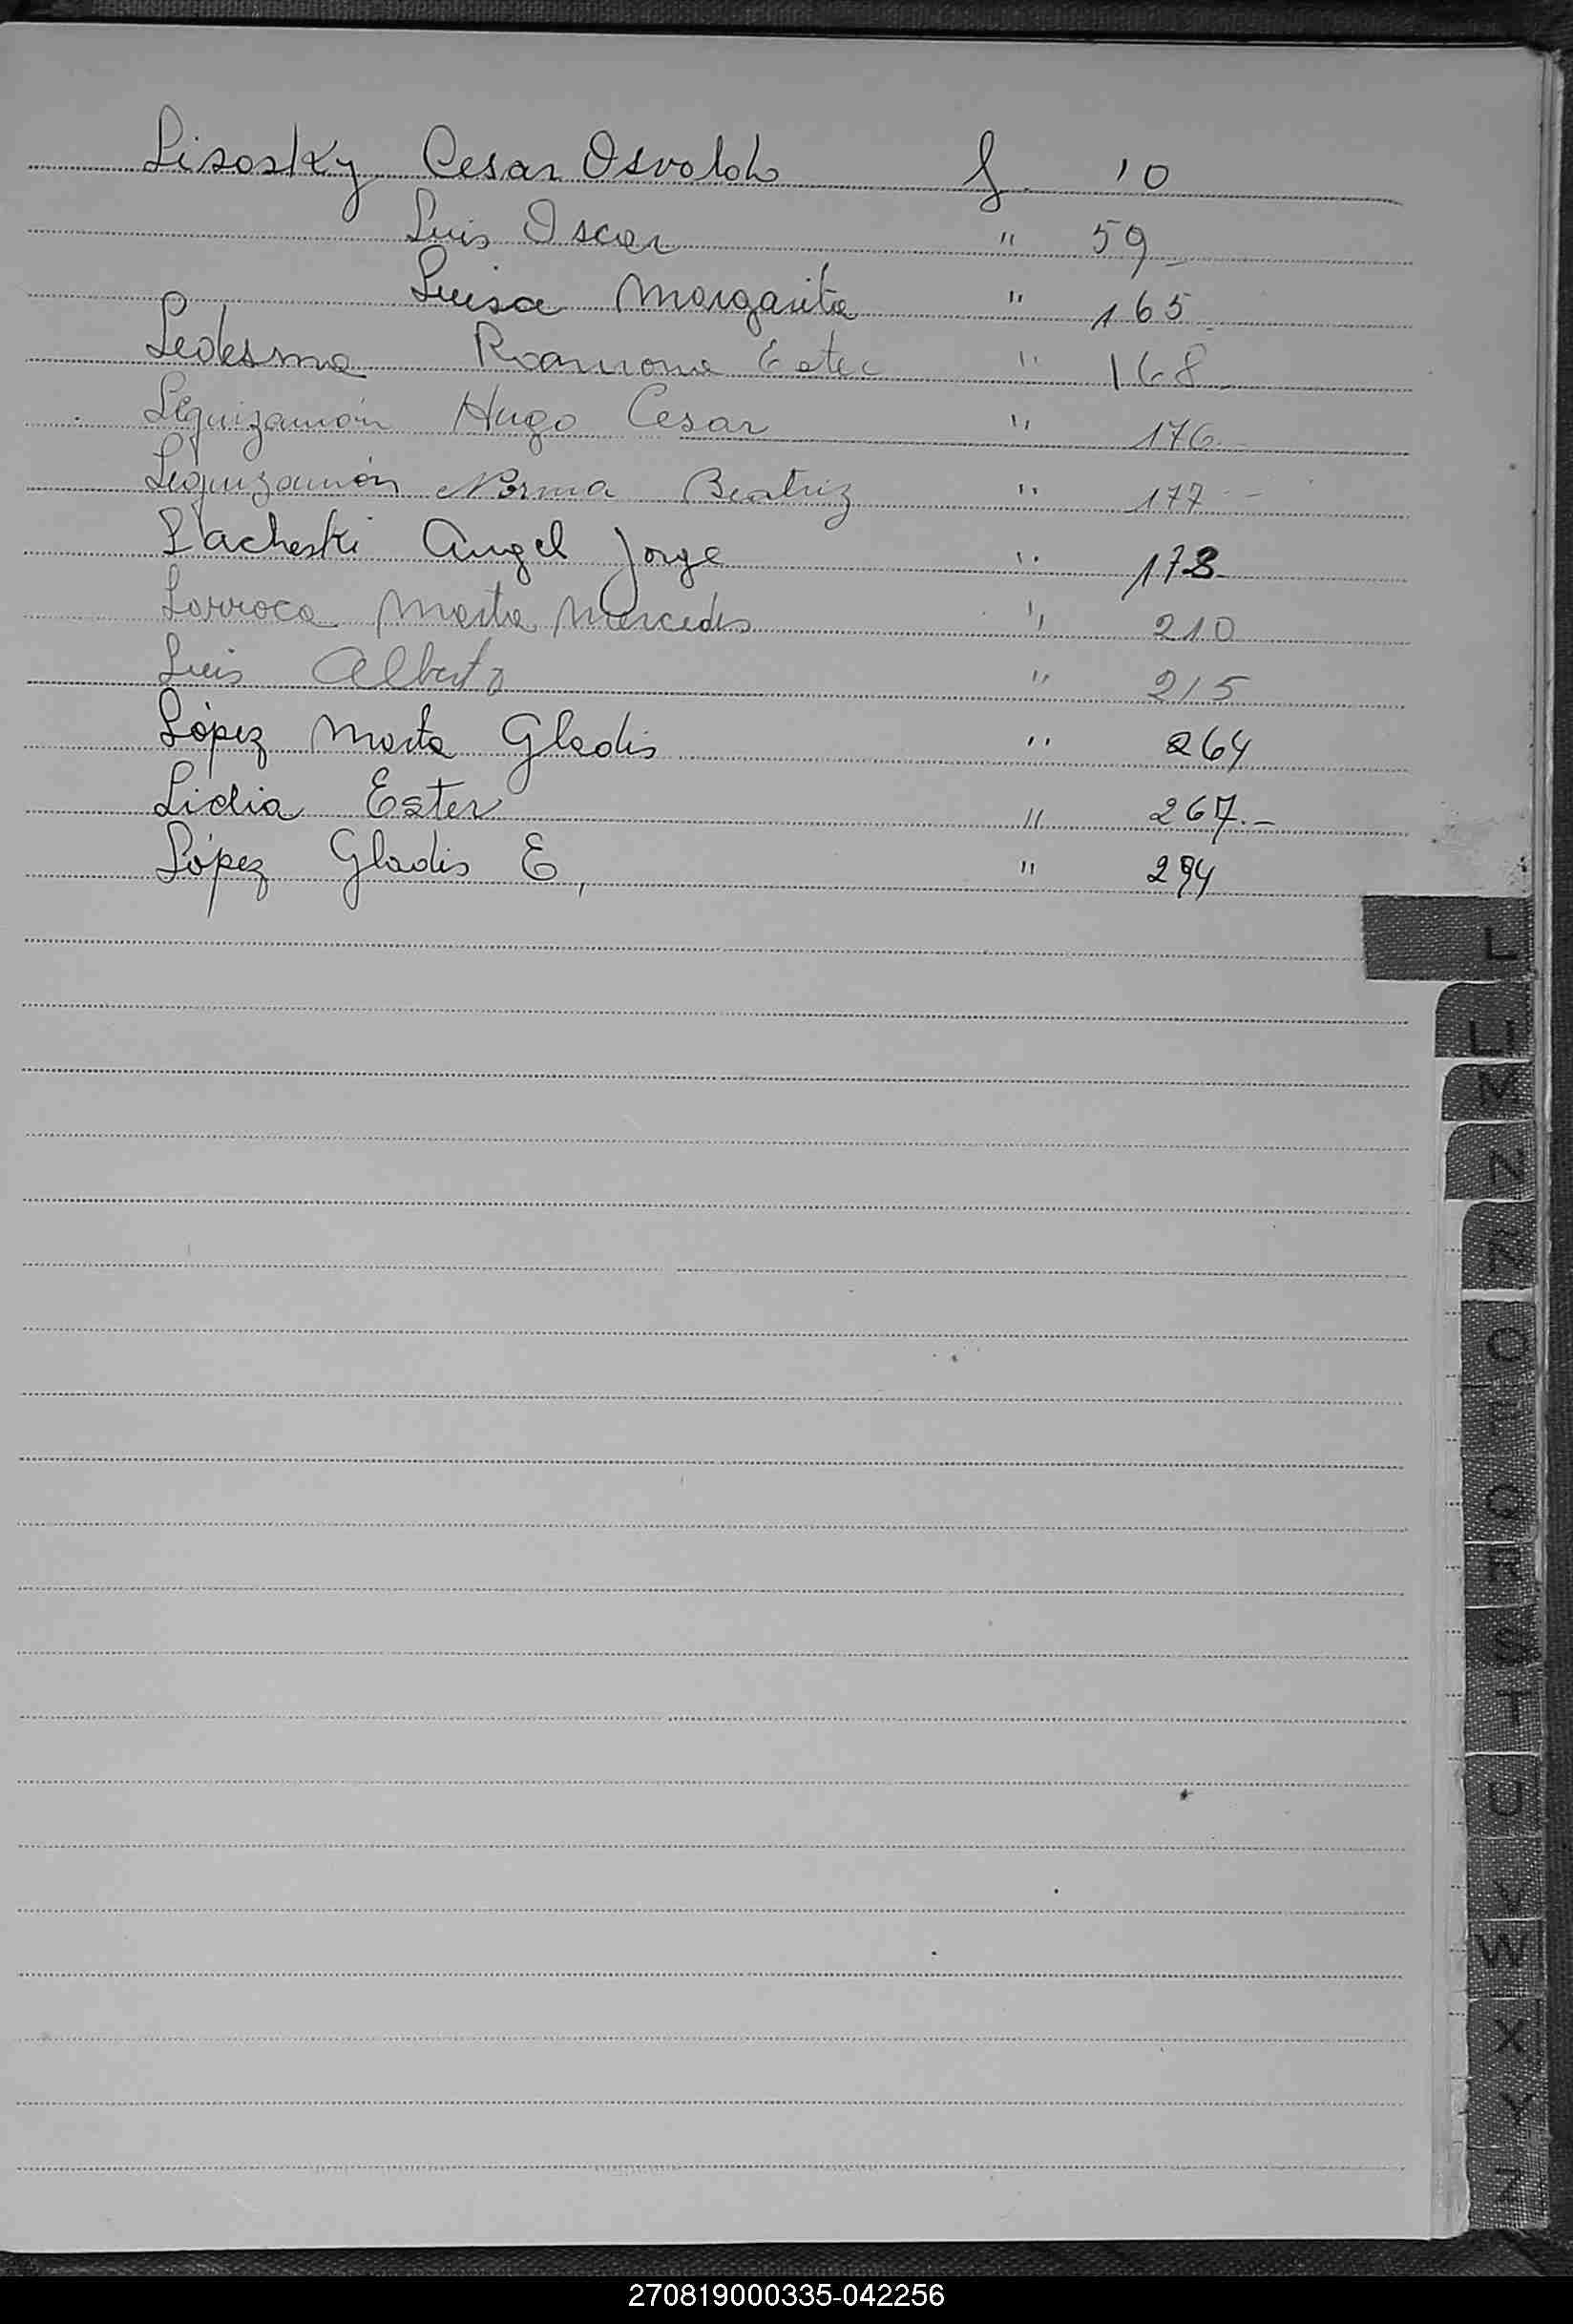 Lisosky Cesar Osvaldo f. 10
Luis Oscar " 59_
Luisa Margarita " 165
Ledesma Ramona Ester " 168_
Leguizamón Hugo Cesar " 176
Leguizamón Norma Beatriz " 177 -
Lacheski Angel Jorge " 178
Larroca Marta Mercedes " 210
Luis Alberto " 215
López Marta Gladis " 264
Lidia Ester " 267.-
López Gladis E, " 294
L
LL
M
N
Ñ
O
P
Q
R
S
T
U
V
W
X
Y
Z
270819000335-042256